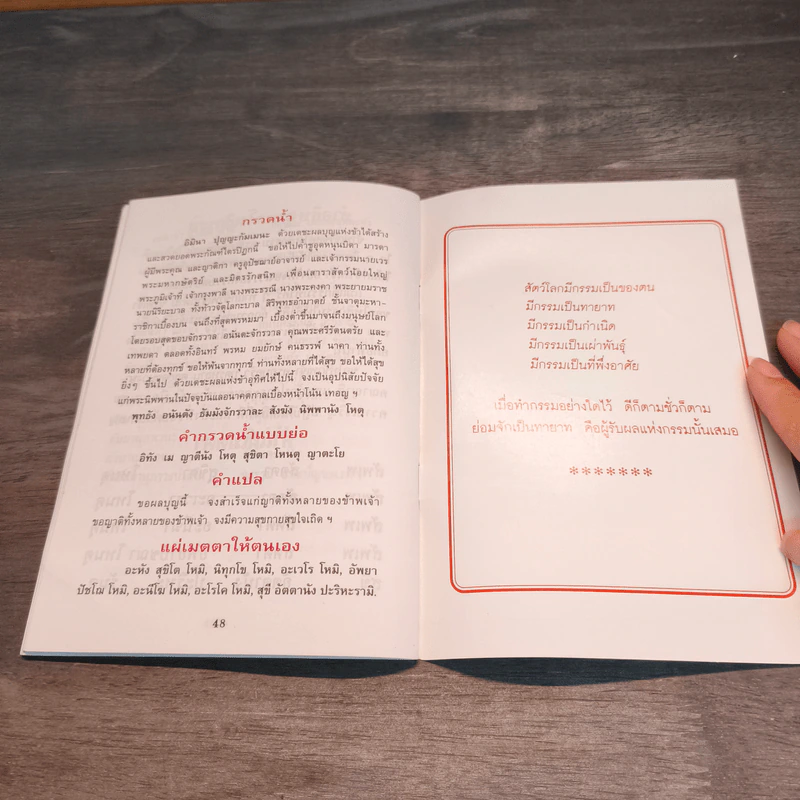 กรวดน้ำ
อิมินา ปุญญะกัมเมนะ ด้วยเดชะผลบุญแห่งข้าได้สร้าง
และสวดยอดพระกัณฑ์ไตรปิฎกนี้ ขอให้ไปค้ำชูอุดหนุนบิดา มารดา
ผู้มีพระคุณ และญาติกา ครูอุปัชฌาย์อาจารย์ และเจ้ากรรมนายเวร
พระมหากษัตริย์ และมิตรรักสนิท เพื่อนสาราสัตว์น้อยใหญ่
พระภูมิเจ้าที่ เจ้ากรุงพาลี นางพระธรณี นางพระคงคา พระยายมราช
นายนิริยะบาล ทั้งท้าวจัตุโลกะบาล สิริพุทธอำมาตย์ ชั้นจาตุมะหา-
ราชิกาเบื้องบน จนถึงที่สุดพรหมมา เบื้องต่ำขึ้นมาจนถึงมนุษย์โลก
โดยรอบสุดขอบจักรวาล อนันตะจักรวาล คุณพระศรีรัตนตรัย และ
เทพยดา ตลอดทั้งอินทร์ พรหม ยมยักษ์ คนธรรพ์ นาคา ท่านทั้ง
หลายที่ต้องทุกข์ ขอให้พ้นจากทุกข์ ท่านทั้งหลายที่ได้สุข ขอให้ได้สุข
ยิ่งๆ ขึ้นไป ด้วยเดชะผลแห่งข้าอุทิศให้ไปนี้ จงเป็นอุปนิสัยปัจจัย
แก่พระนิพพานในปัจจุบันและอนาคตกาลเบื้องหน้าโน้น เทอญ ฯ
พุทธัง อนันตัง ธัมมังจักรวาละ สังฆัง นิพพานัง โหตุ
คำกรวดน้ำแบบย่อ
อิทัง เม ญาตีนัง โหตุ สุขิตา โหนตุ ญาตะโย
คำแปล
ขอผลบุญนี้ จงสำเร็จแก่ญาติทั้งหลายของข้าพเจ้า
ขอญาติทั้งหลายของข้าพเจ้า จงมีความสุขกายสุขใจเถิด ฯ
แผ่เมตตาให้ตนเอง
อะหัง สุขิโต โหมิ, นิทุกโข โหมิ, อะเวโร โหมิ, อัพยา
ปัชโฌ โหมิ, อะนีโฆ โหมิ, อะโรโค โหมิ, สุขี อัตตานัง ปะริหะรามิ.
48
สัตว์โลกมีกรรมเป็นของตน
มีกรรมเป็นทายาท
มีกรรมเป็นกำเนิด
มีกรรมเป็นเผ่าพันธุ์
มีกรรมเป็นที่พึ่งอาศัย
เมื่อทำกรรมอย่างใดไว้ ดีก็ตามชั่วก็ตาม
ย่อมจักเป็นทายาท คือผู้รับผลแห่งกรรมนั้นเสมอ
*******